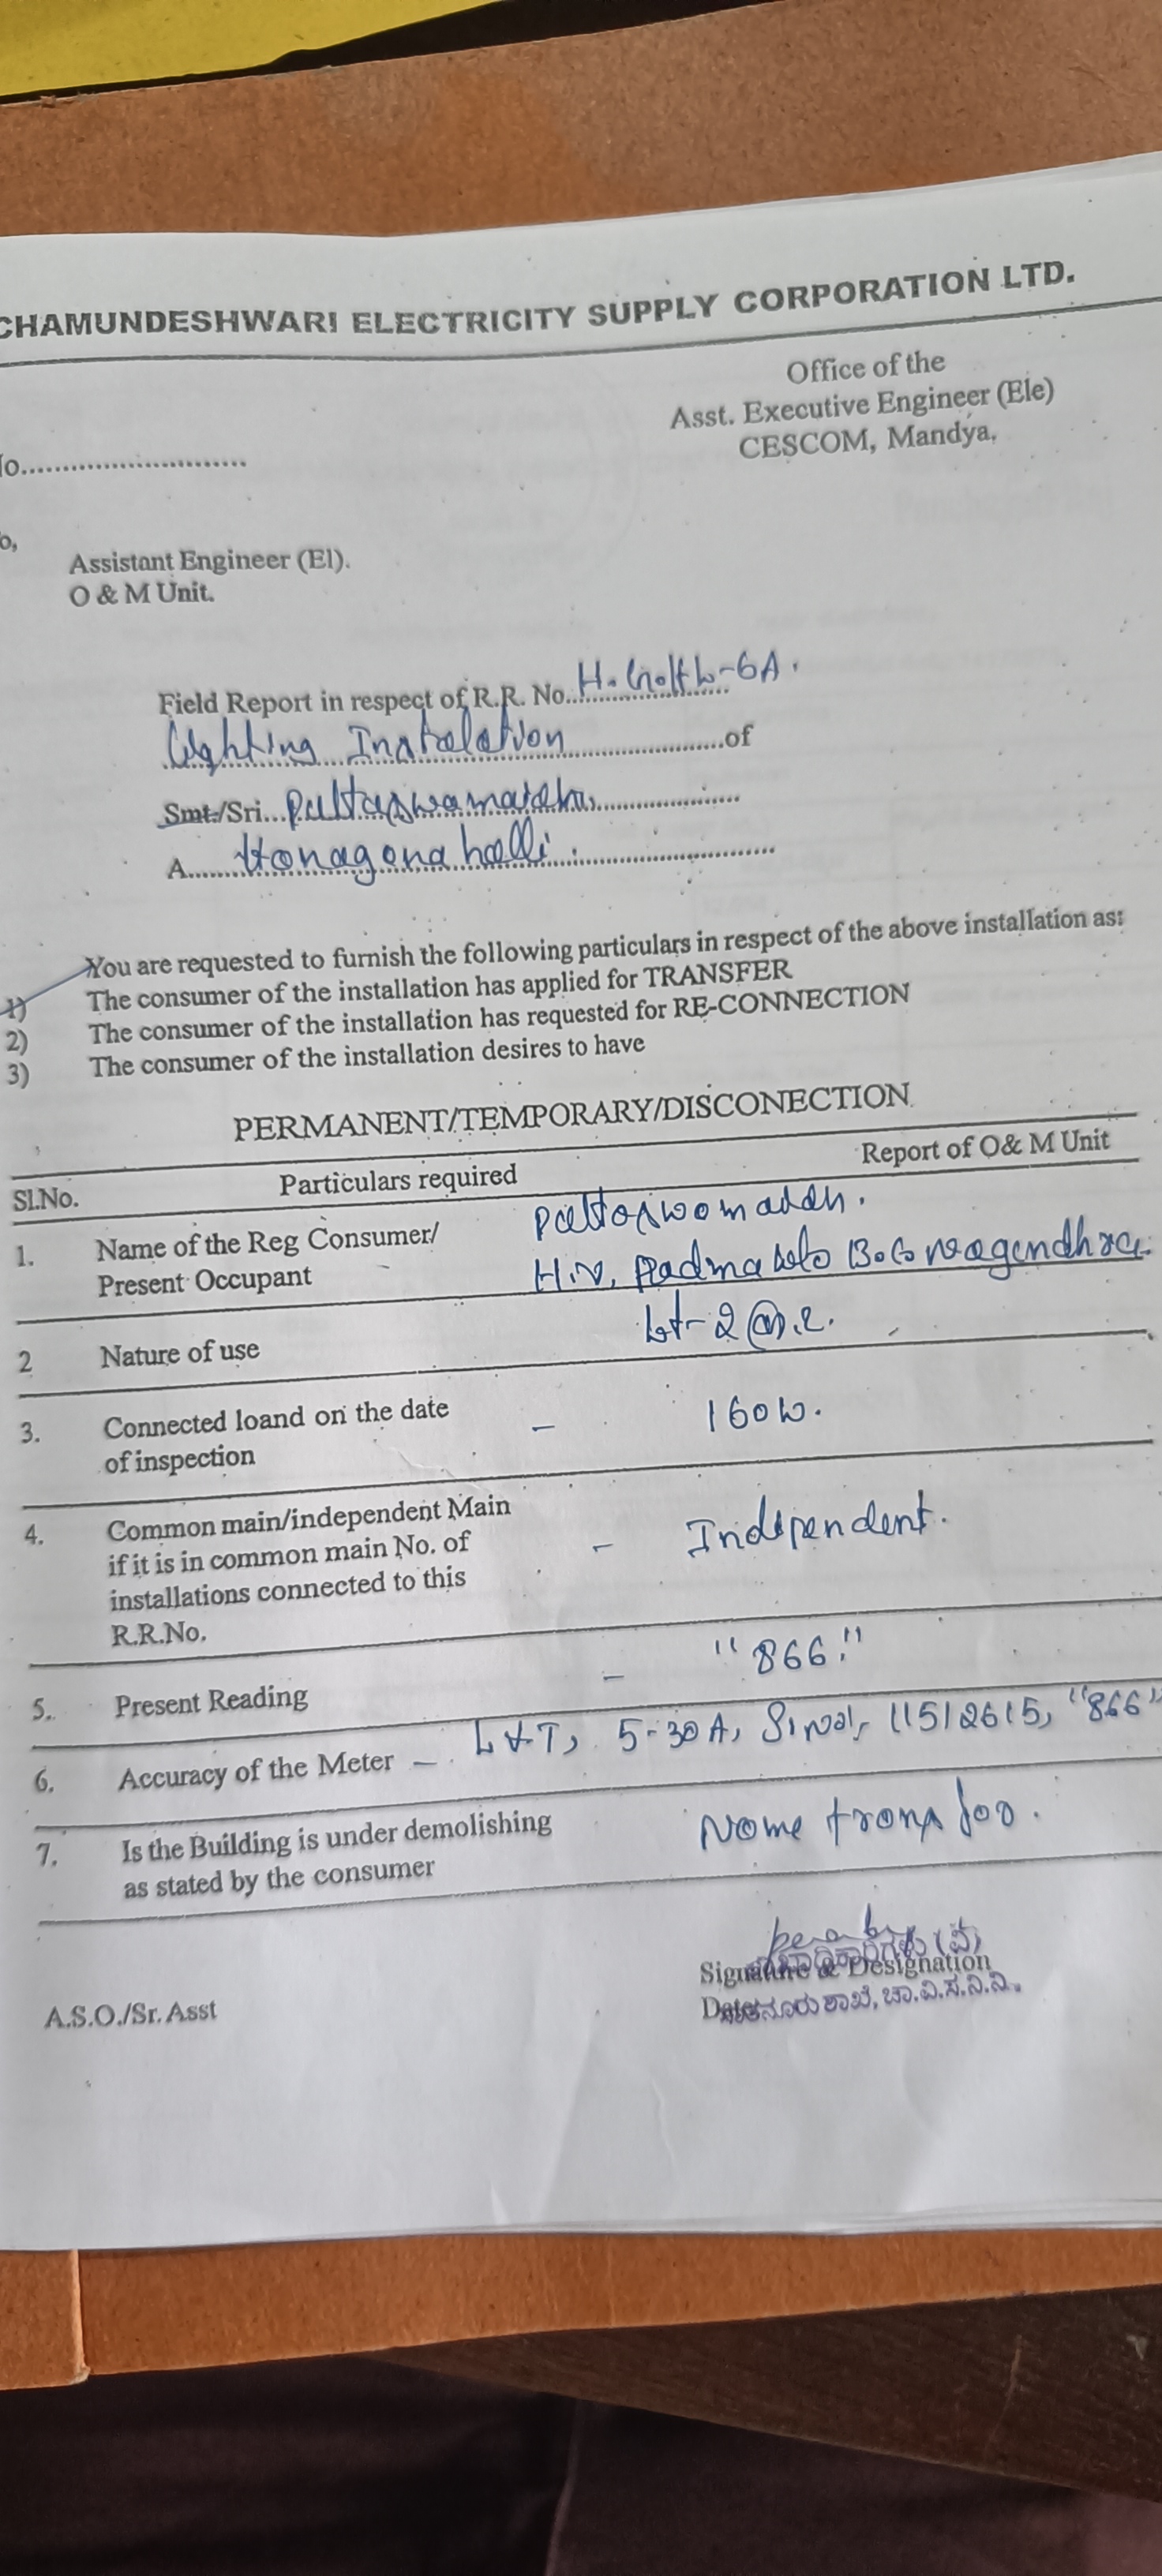 CHAMUNDESHWARI ELECTRICITY SUPPLY CORPORATION LTD.
Office of the
Asst. Executive Engineer (Ele)
CESCOM, Mandya.
No...........................
o,
Assistant Engineer (El).
O & M Unit.
Field Report in respect of R.R. No. -6A.
Lighting Instalation of
Smt./Sri...
A...... Honaganahalli
You are requested to furnish the following particulars in respect of the above installation as:
1) The consumer of the installation has applied for TRANSFER
2) The consumer of the installation has requested for RE-CONNECTION
3) The consumer of the installation desires to have
PERMANENT/TEMPORARY/DISCONECTION
Sl.No. Particulars required Report of O& M Unit
1. Name of the Reg Consumer/
Present Occupant H.N. Padma
2 Nature of use
3. Connected loand on the date - 160W.
of inspection
4. Common main/independent Main - Independent.
if it is in common main No. of
installations connected to this
R.R.No.
5. Present Reading - "866."
6. Accuracy of the Meter - L&T, 5-30A, Sl no, 11512615, "866"
7. Is the Building is under demolishing Name transfor.
as stated by the consumer
Signature & Designation
Date
ಶಾಖೆ, ಚಾ.ವಿ.ಸ.ನಿ.ನಿ.
A.S.O./Sr. Asst